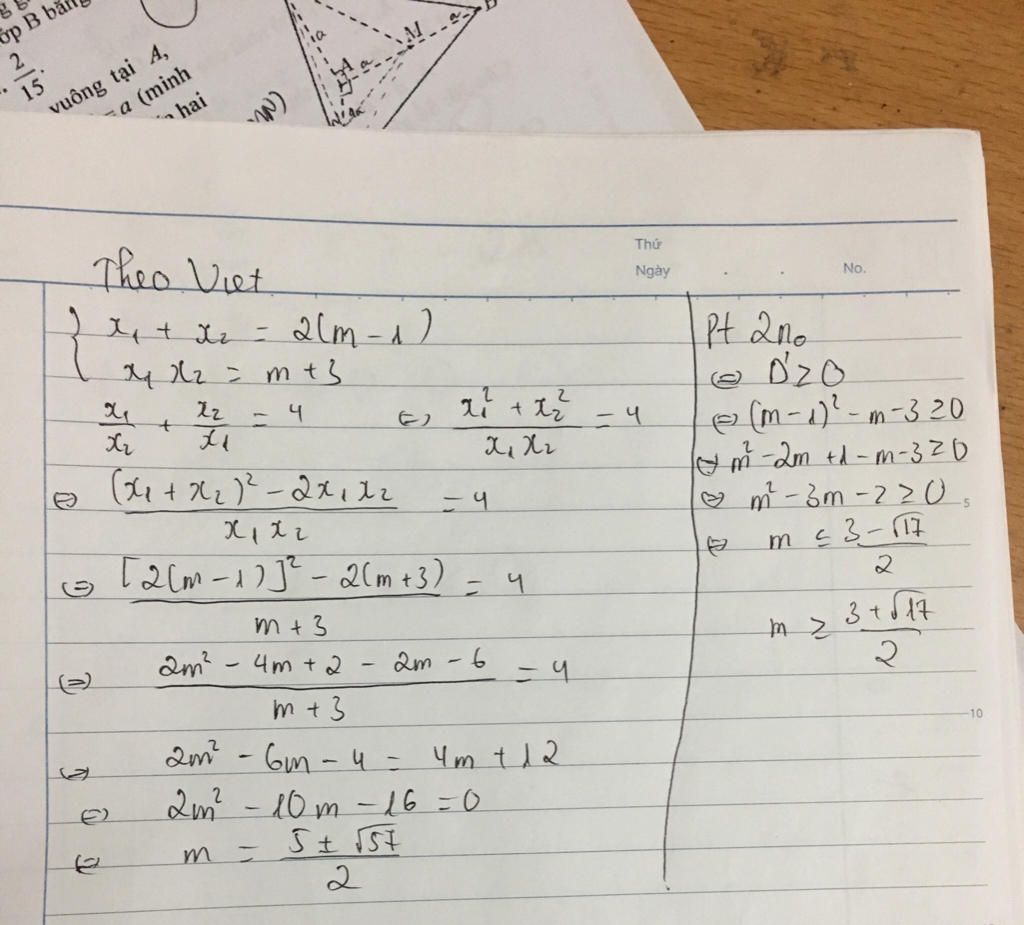 ớp B bằng
2/15.
vuông tại A,
= a (minh
hai
Thứ
Ngày . . No.
Theo Viet
{ x₁ + x₂ = 2(m - 1)
x₁ x₂ = m + 3
x₁/x₂ + x₂/x₁ = 4 ⇔ (x₁² + x₂²)/(x₁ x₂) = 4
⇔ ((x₁ + x₂)² - 2x₁ x₂)/(x₁ x₂) = 4
⇔ ([2(m - 1)]² - 2(m + 3))/(m + 3) = 4
⇔ (2m² - 4m + 2 - 2m - 6)/(m + 3) = 4
⇔ 2m² - 6m - 4 = 4m + 12
⇔ 2m² - 10m - 16 = 0
⇔ m = (5 ± √57)/2
Pt 2n₀
⇔ Δ' ≥ 0
⇔ (m - 1)² - m - 3 ≥ 0
⇔ m² - 2m + 1 - m - 3 ≥ 0
⇔ m² - 3m - 2 ≥ 0
⇔ m ≤ (3 - √17)/2
m ≥ (3 + √17)/2
5
10